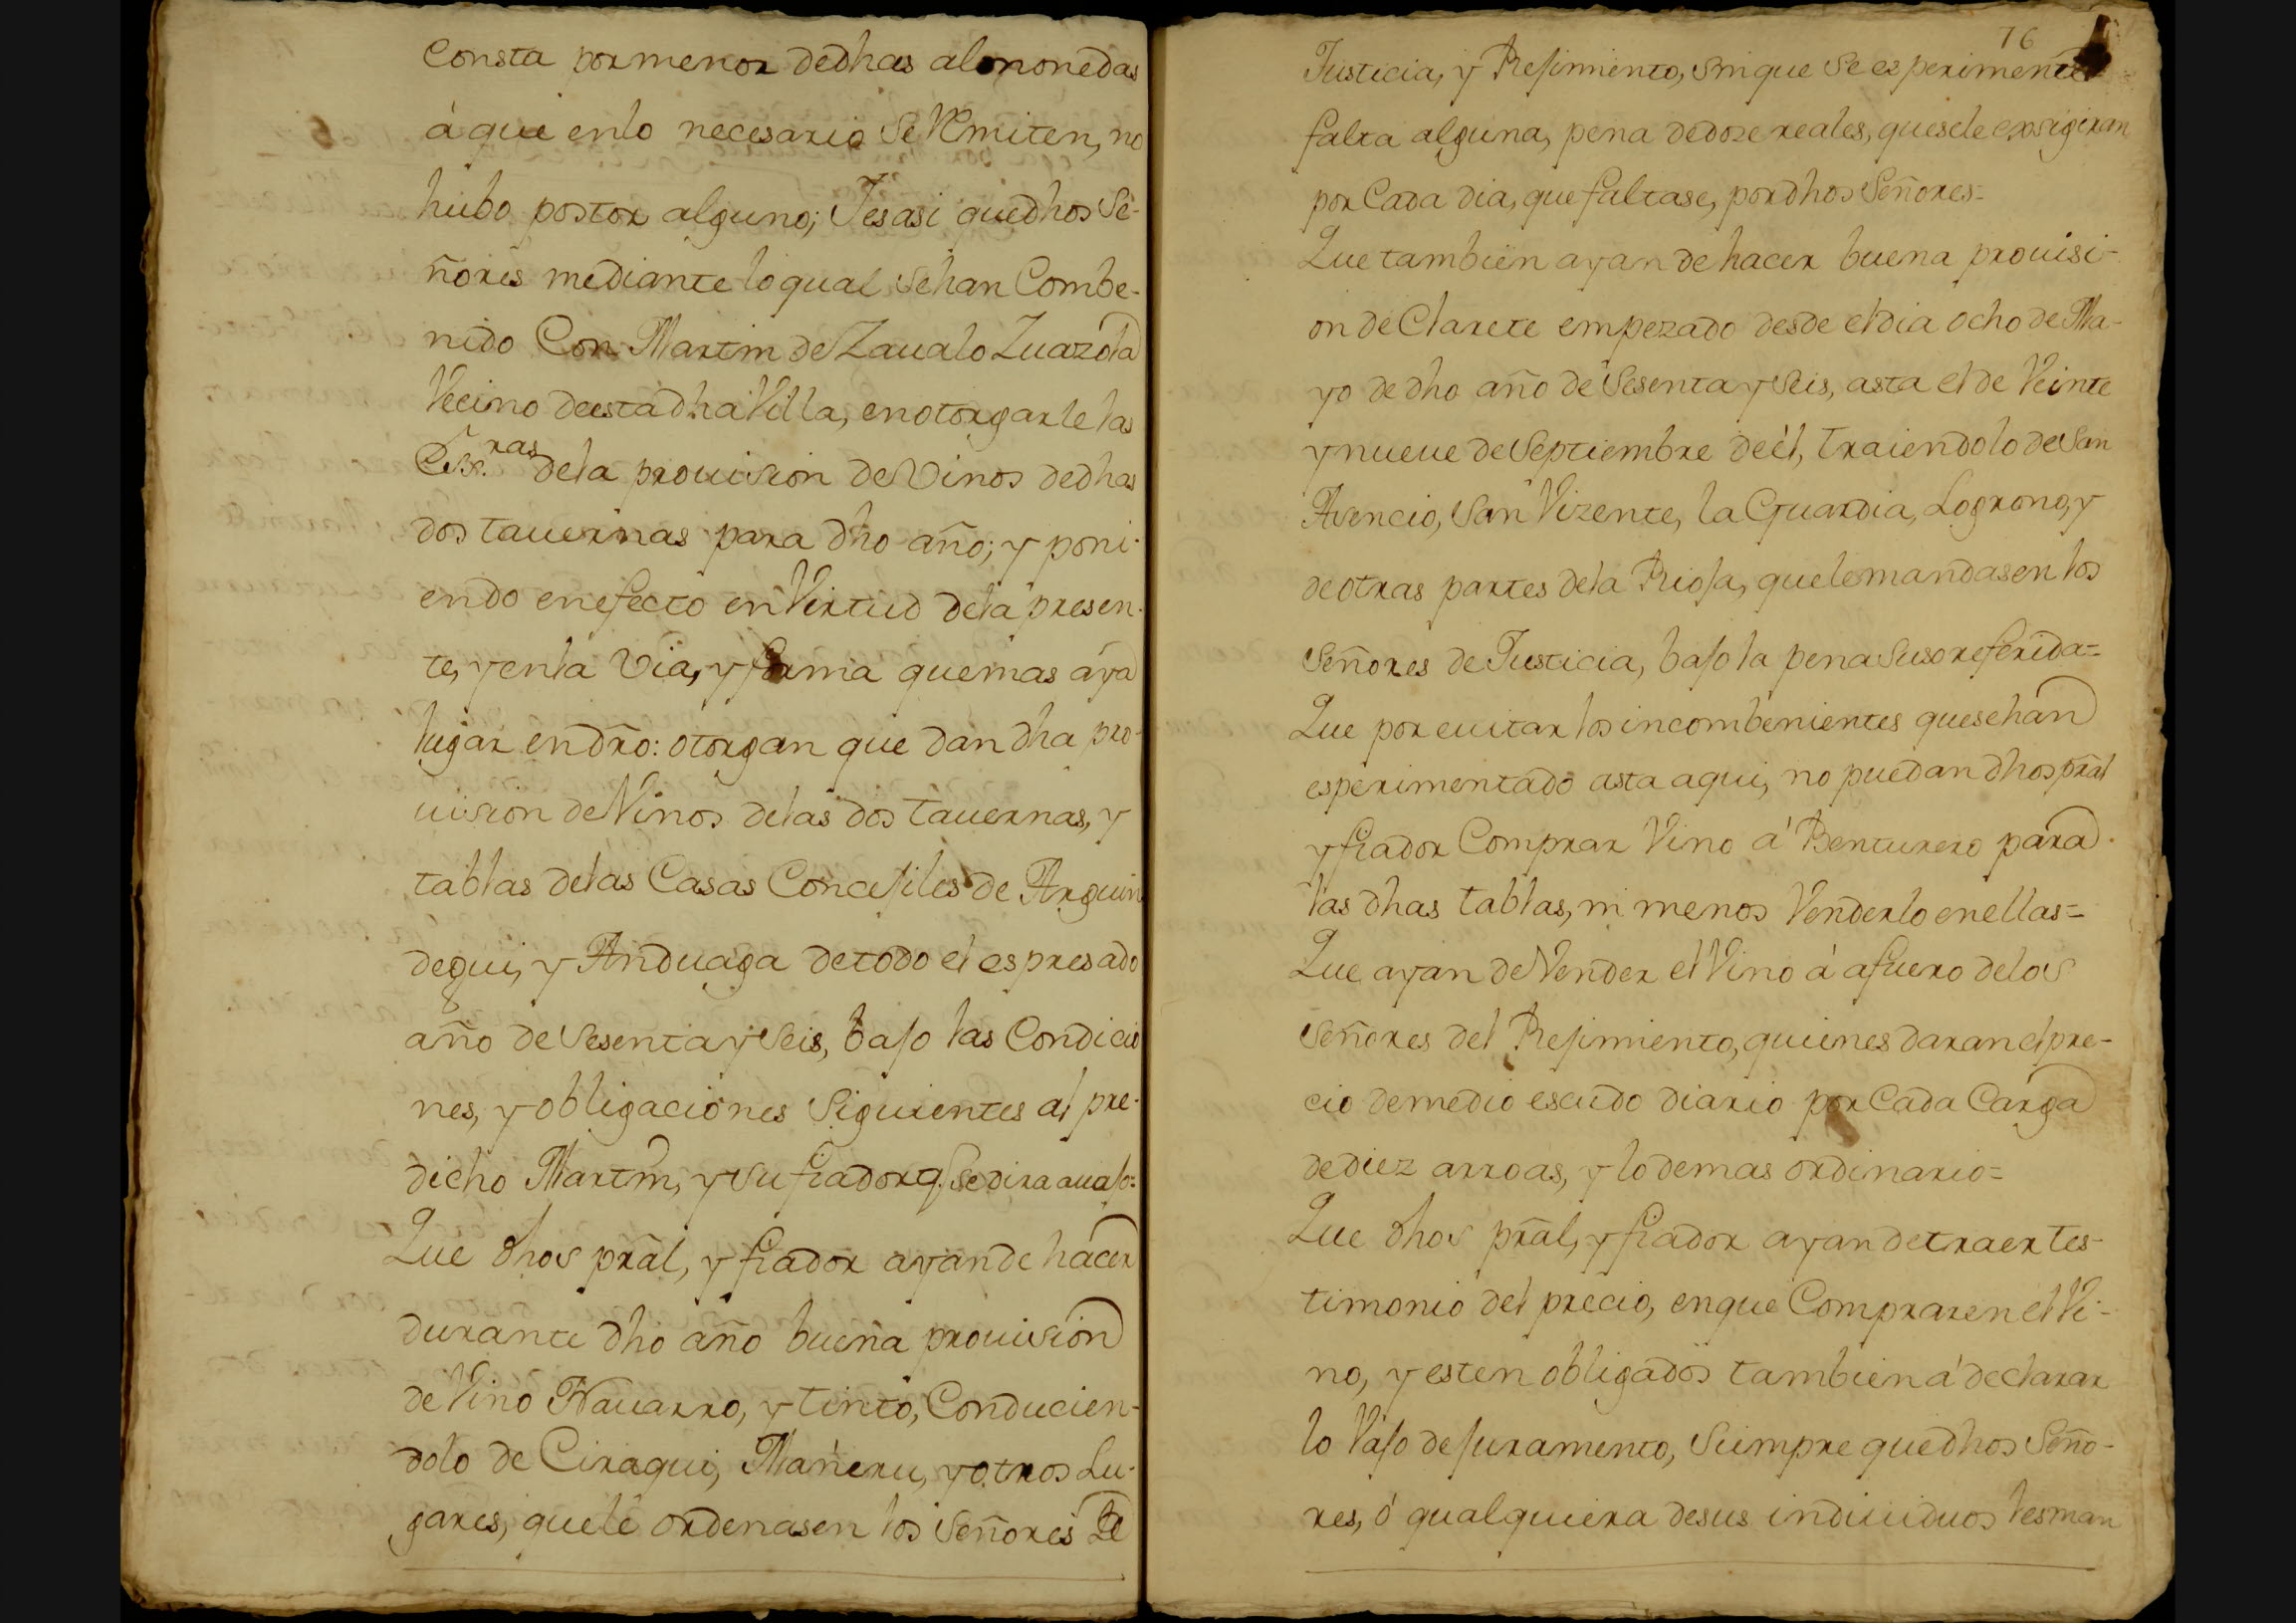 Consta por menor de dhas almonedas
á que en lo necesario Se Remiten, no
hubo postor alguno; Y es asi que dhos Se-
ñores mediante lo qual Se han Combe-
nido Con Martin de Zaualo Zuazola
Vecino de esta dha Villa, en otorgarle las
Esc.ras de la prouision de Vinos de dhas
dos tauernas para dho año; y poni-
endo en efecto en Virtud de la presen-
te, y en la Via, y forma que mas aya
lugar en dro: otorgan que dan dha pro-
uision de Vinos de las dos tauernas, y
tablas de las Casas Concejiles de Arguin
degui, y Anduaga de todo el espresado
año de Sesenta y Seis, bajo las Condicio
nes, y obligaciones Siguientes al pre-
dicho Martin, y su fiador q. Se dira auajo=
Que dhos pral, y fiador ayan de hacer
durante dho año buena prouision
de Vino Nauarro, y tinto, Conducien-
dolo de Ciraqui, Mañeru, y otros Lu-
gares, que le ordenasen los Señores de
76
Justicia, y Rejimiento, sin que Se esperimente
falta alguna, pena de doze reales, que se le exsigiran
por Cada dia, que faltase, por dhos Señores=
Que tambien ayan de hacer buena prouisi-
on de Clarete empezado desde el dia ocho de Ma-
yo de dho año de Sesenta y Seis, asta el de Veinte
y nueue de Septiembre de él, traiendolo de San
Asencio, San Vizente, la Guardia, Logrono, y
de otras partes de la Rioja, que le mandasen los
Señores de Justicia, bajo la pena Suso referida=
Que por euitar los incombenientes que se han
esperimentado asta aqui, no puedan dhos pral
y fiador Comprar Vino á Benturero para
las dhas tablas, ni menos Venderlo en ellas=
Que ayan de Vender el Vino á afuero de los
Señores del Rejimiento, quienes daran el pre-
cio de medio escudo diario por Cada Carga
de diez arroas, y lo demas ordinario=
Que dhos pral, y fiador ayan de traer tes-
timonio del precio, en que Compraren el Vi-
no, y esten obligados tambien á declarar
lo Vajo de juramento, Siempre que dhos Seño-
res, ó qualquiera de sus indiuiduos les man